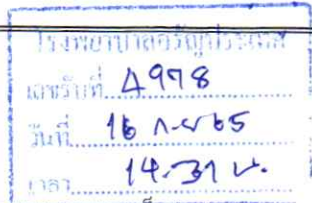 โรงพยาบาลอรัญประเทศ
เลขรับที่ 4978
วันที่ 16 ก.ย 65
เวลา 14.31 น.